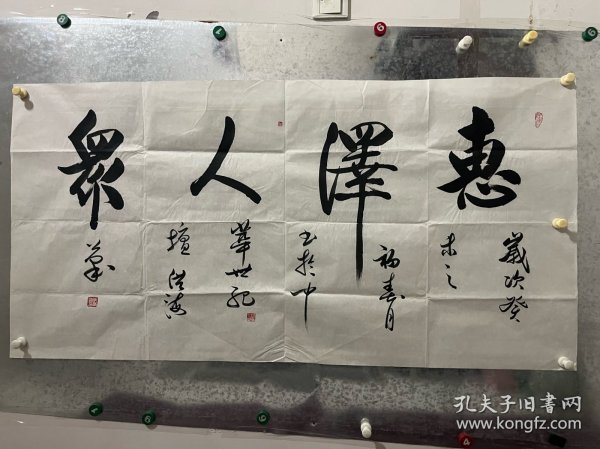 惠澤人衆
歲次癸
未之
福春月
書於中
華世紀
壇洪海
孔夫子旧書网
www.kongfz.com